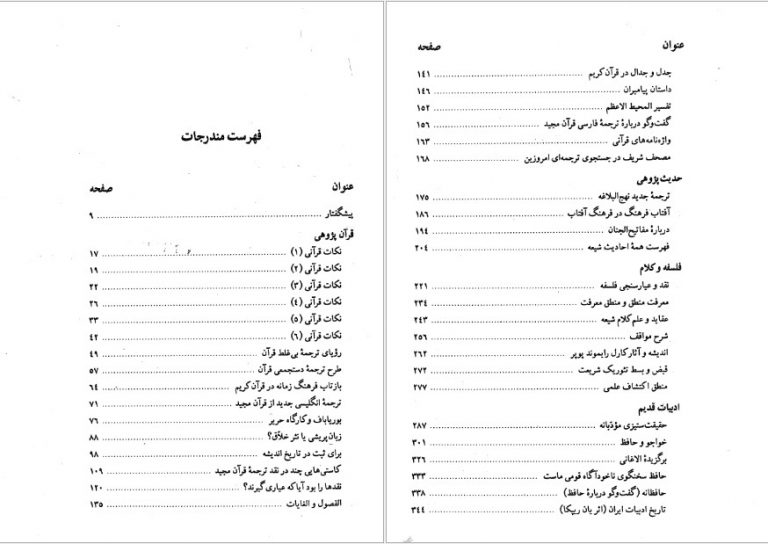 فهرست مندرجات
عنوان صفحه
پیشگفتار ۹
قرآن پژوهی
نکات قرآنی (۱) ۱۷
نکات قرآنی (۲) ۱۹
نکات قرآنی (۳) ۲۲
نکات قرآنی (٤) ۲۶
نکات قرآنی (٥) ۳۳
نکات قرآنی (٦) ٤۲
رؤیای ترجمهٔ بی‌غلط قرآن ٤۹
طرح ترجمهٔ دستجمعی قرآن ٥۷
بازتاب فرهنگ زمانه در قرآن کریم ٦٤
ترجمهٔ انگلیسی جدید از قرآن مجید ۷۱
بوریاباف و کارگاه حریر ۷٦
زبان‌پریشی یا نثر خلاّق؟ ۸۸
برای ثبت در تاریخ اندیشه ۹۸
کاستی‌هایی چند در نقد ترجمهٔ قرآن مجید ۱۰۹
نقدها را بود آیا که عیاری گیرند؟ ۱۲۰
الفصول و الغایات ۱۳٥
عنوان صفحه
جدل و جدال در قرآن کریم ۱٤۱
داستان پیامبران ۱٤٦
تفسیر المحیط الاعظم ۱٥۲
گفت‌وگو دربارهٔ ترجمهٔ فارسی قرآن مجید ۱٥٦
واژه‌نامه‌های قرآنی ۱٦۳
مصحف شریف در جستجوی ترجمه‌ای امروزین ۱٦۸
حدیث پژوهی
ترجمهٔ جدید نهج‌البلاغه ۱۷٥
آفتاب فرهنگ در فرهنگ آفتاب ۱۸٦
دربارهٔ مفاتیح‌الجنان ۱۹٤
فهرست همهٔ احادیث شیعه ۲۰٤
فلسفه و کلام
نقد و عیارسنجی فلسفه ۲۲۱
معرفت منطق و منطق معرفت ۲۳٤
عقاید و علم کلام شیعه ۲٤۳
شرح مواقف ۲٥٦
اندیشه و آثار کارل رایموند پوپر ۲٦۲
قبض و بسط تئوریک شریعت ۲۷۲
منطق اکتشاف علمی ۲۷۷
ادبیات قدیم
حقیقت‌ستیزی مؤدّبانه ۲۸۷
خواجو و حافظ ۳۰۱
برگزیدهٔ الاغانی ۳۲٦
حافظ سخنگوی ناخودآگاه قومی ماست ۳۳۳
حافظانه (گفت‌وگو دربارهٔ حافظ) ۳۳۸
تاریخ ادبیات ایران (اثر یان ریپکا) ۳٤٤